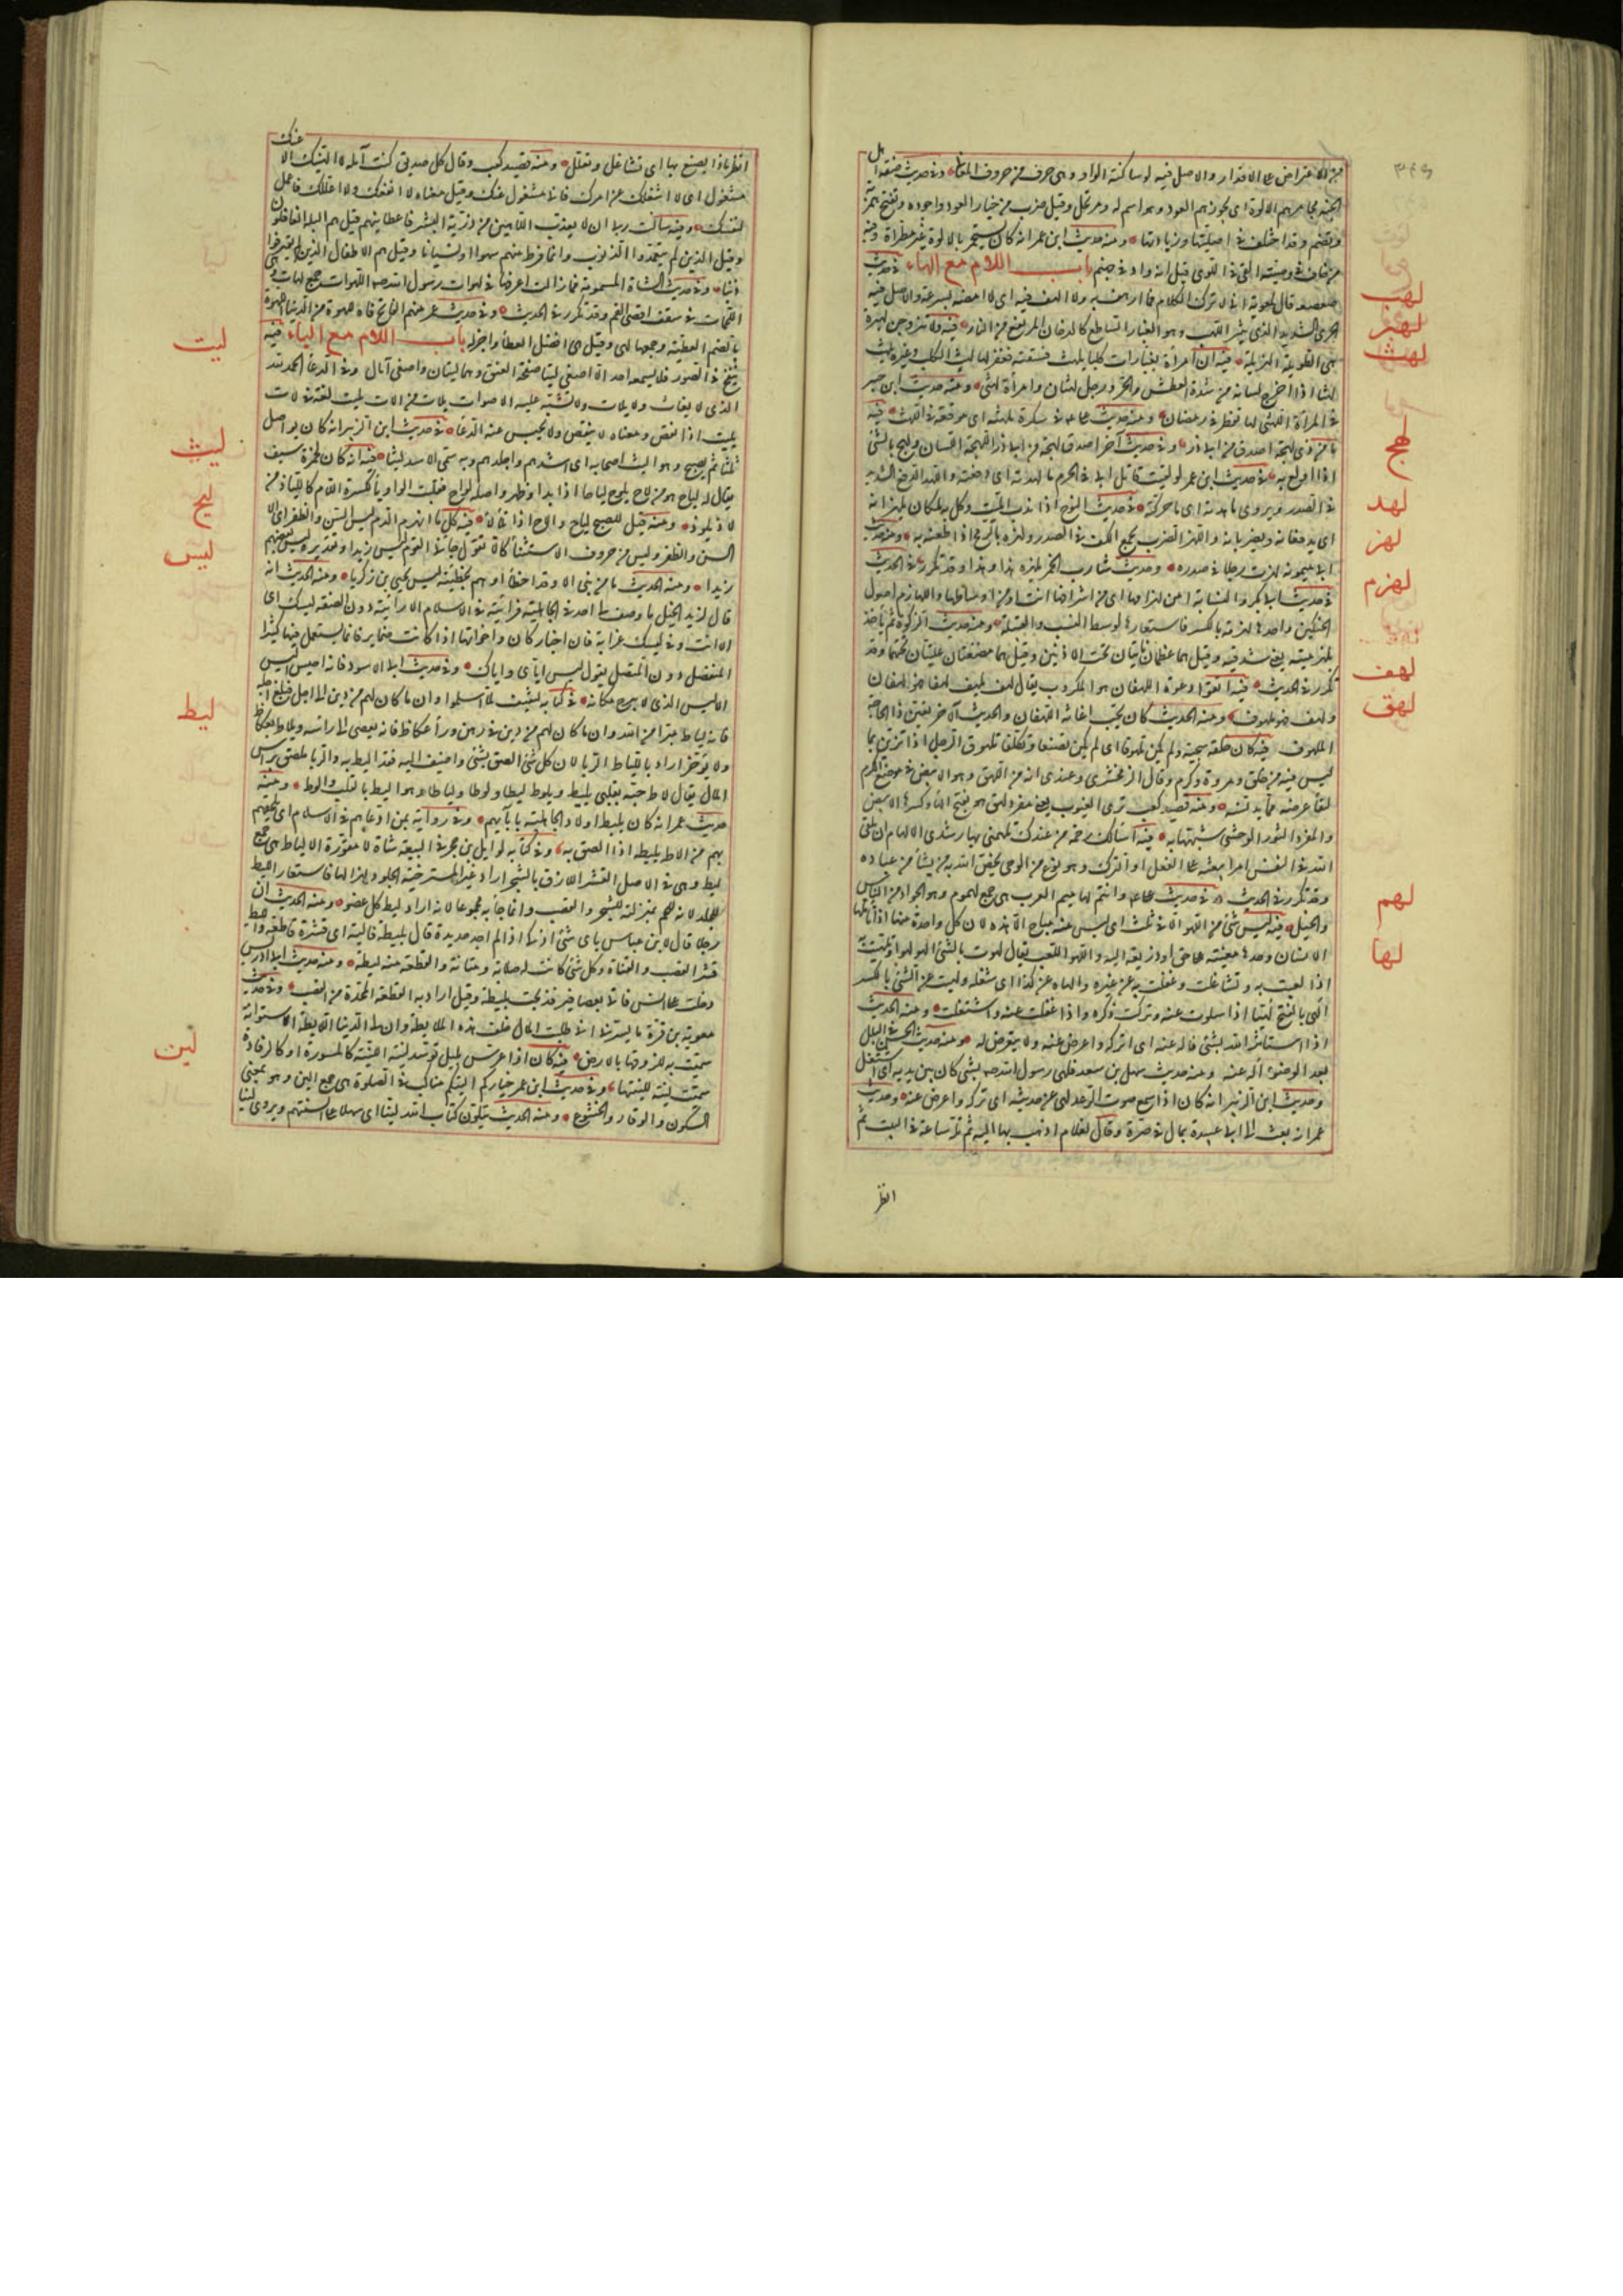 من الاعتراض على الاقدار والاصل فيه لو ساكنة الواو وهى حرف من حروف المعانى وفى حديث صفة اهل
الجنة مجامرهم الالوة اى بخورهم العود وهو اسم له مرتجل وقيل ضرب من خيار العود واجوده وتفتح همزته
وتضم وقد اختلف فى اصليتها وزيادتها ومنه حديث ابن عمر انه كان يستجمر بالالوة غير مطراة وفيه
من خان فى وصيته القى فى اللوى قيل انه واد فى جهنم باب اللام مع الهاء فى حديث
صعصعة قال لمعوية انى لا ترك الكلام فما ارهف به ولا الهب فيه اى لا امضيه بسرعة والاصل فيه
الجرى الشديد الذى يثير اللهب وهو الغبار الساطع كالدخان المرتفع من النار فيه لا تتزوجن لهبرة
هى الطويلة الهزيلة فيه ان امراة بغيا رات كلبا يلهث فسقته فغفر لها لهث الكلب وغيره يلهث
لهثا اذا اخرج لسانه من شدة العطش والحر ورجل لهثان وامرأة لهثى ومنه حديث ابن جبير
فى المراة اللهثى انها تفطر فى رمضان ومنه حديث على فى سكرة ملهثة اى موقعة فى اللهث فيه
ما من ذى لهجة اصدق من ابى ذر وفى حديث آخر اصدق لهجة من ابى ذر اللهجة اللسان ولهج بالشئ
اذا اولع به فى حديث ابن عمر لو لقيت قاتل ابى فى الحرم ما لهدته اى دفعته واللهد الدفع الشديد
فى الصدر ويروى ما هدته اى ما حركته فى حديث النوح اذا ندب الميت وكل به ملكان يلهزانه
اى يدفعانه ويضربانه واللهز الضرب بجمع الكف فى الصدر ولهزه بالرمح اذا طعنه به ومنه حديث
ابى ميمونة لهزت رجلا فى صدره وحديث شارب الخمر يلهزه هذا وهذا وقد تكرر فى الحديث
فى حديث ابى بكر والنسابة امن هامها او لهازمها اى من اشرافها انت او من اوساطها واللهازم اصول
الحنكين واحدتها لهزمة بالكسر فاستعارها لوسط النسب والقبيلة ومنه حديث الزكوة ثم يأخذ
بلهزمتيه يعنى شدقيه وقيل هما عظمان ناتيان تحت الاذنين وقيل هما مضغتان عليتان تحتهما وقد
تكرر فى الحديث فيه اتقوا دعوة اللهفان هو المكروب يقال لهف يلهف لهفا فهو لهفان
ولهف فهو ملهوف ومنه الحديث كان يحب اغاثة اللهفان والحديث الاخر يعين ذا الحاجة
الملهوف فيه كان خلقه سجية ولم يكن تلهوقا اى لم يكن تصنعا وتكلفا تلهوق الرجل اذا تزين بما
ليس فيه من خلق ومروة وكرم وقال الزمخشرى وعندى انه من اللهق وهو الابيض فى موضع الكرم
لنقاء عرضه مما يدنسه ومنه قصيد كعب ترى الغيوب بعينى مفرد لهق هو بفتح الهاء وكسرها الابيض
والمفرد الثور الوحشى شبهها به فيه اسالك رحمة من عندك تلهمنى بها رشدى الالهام ان يلقى
الله فى النفس امرا يبعثه على الفعل او الترك وهو نوع من الوحى يخص الله به من يشاء من عباده
وقد تكرر فى الحديث فى حديث على وانتم لهاميم العرب هى جمع لهموم وهو الجواد من الناس
والخيل فيه ليس شئ من اللهو الا فى ثلث اى ليس منه مباح الا هذه لان كل واحدة منها اذا تاملتها
اذا لعبت به وتشاغلت وغفلت به عن غيره والهاه عن كذا اى شغله ولهيت عن الشئ بالكسر
الهى بالفتح لهيا اذا سلوت عنه وتركت ذكره واذا غفلت عنه واشتغلت ومنه الحديث
اذا استاثر الله بشئ فاله عنه اى اتركه واعرض عنه ولا تتعرض له ومنه حديث الحسن فى البلل
بعد الوضوء اله عنه ومنه حديث سهل بن سعد فلهى رسول الله صم بشئ كان بين يديه اى اشتغل
وحديث ابن الزبير انه كان اذا سمع صوت الرعد لهى عن حديثه اى تركه واعرض عنه وحديث
عمر انه بعث الى ابى عبيدة بمال فى صرة وقال لغلام اذهب بها اليه ثم تله ساعة فى البيت ثم
انظر
لهب
لهبر
لهث
لهج
لهد
لهز
لهزم
لهف
لهق
لهم
لها
انظر ماذا يصنع بها اى تشاغل وتعلل ومنه قصيد كعب وقال كل صديق كنت آمله لا الهينك انى عنك
مشغول اى لا اشغلك عن امرك فانى مشغول عنك وقيل معناه لا انفعك ولا اعللك فاعمل
لنفسك وفيه سالت ربى ان لا يعذب اللاهين من ذرية البشر فاعطانيهم قيل هم البله الغافلون
وقيل الذين لم يتعمدوا الذنوب وانما فرط منهم سهوا ونسيانا وقيل هم الاطفال الذين لم يقترفوا
ذنبا وفى حديث الشاة المسمومة فما زالت اعرفها فى لهوات رسول الله صم اللهوات جمع لهات وهى
اللحمات فى سقف اقصى الفم وقد تكرر فى الحديث وفى حديث عمر منهم الفاتح فاه للهوة من الدنيا اللهوة
بالضم العطية وجمعها لهى وقيل هى افضل العطاء واجزله باب اللام مع الياء فيه
ينفخ فى الصور فلا يسمعه احد الا اصغى ليتا الليت صفحة العنق وهما ليتان واصغى امال وفى الدعاء الحمد لله
الذى لا يفات ولا يلات ولا تشتبه عليه الاصوات يلات من الات يليت لغة فى لات
يليت اذا نقص ومعناه لا ينقص ولا يحبس عنه الدعاء فى حديث ابن الزبير انه كان يواصل
ثلثا ثم يصبح وهو اليث اصحابه اى اشدهم واجلدهم وبه سمى الاسد ليثا فيه انه كان لحمزة سيف
يقال له لياح هو من لاح يلوح لياحا اذا بدا وظهر واصله لواح فقلبت الواو ياء لكسرة اللام كاللياذ من
لاذ يلوذ ومنه قيل للصبح لياح والاح اذا تلألأ فيه كل ما انهر الدم ليس السن والظفر اى الا
السن والظفر وليس من حروف الاستثناء كالا تقول جاءنى القوم ليس زيدا وتقديره ليس بعضهم
زيدا ومنه الحديث ما من نبى الا وقد اخطأ او هم بخطيئة ليس يحيى بن زكريا ومنه الحديث انه
قال لزيد الخيل ما وصف لى احد فى الجاهلية فرايته فى الاسلام الا رايته دون الصفة ليسك اى
الا انت وفى ليسك غرابة فان اخبار كان واخواتها اذا كانت ضماير فانما يستعمل فيها كثيرا
المنفصل دون المتصل يقول ليس اياى واياك وفى حديث ابى الاسود فانه اهيس اليس
الاليس الذى لا يبرح مكانه فى كتابه لثقيف لما اسلموا وان ما كان لهم من دين الى اجل فبلغ اجله
فانه لياط مبرا من الله وان ما كان لهم من دين فى رهن وراء عكاظ فانه يقضى الى راسه ويلاط بعكاظ
ولا يؤخر اراد باللياط الربا لان كل شئ الصق بشئ واضيف اليه فقد اليط به والربا ملصق براس
المال يقال لاط حبه بقلبى يليط ويلوط ليطا ولوطا ولياطا وهو اليط بالقلب والوط ومنه
حديث عمر انه كان يليط اولاد الجاهلية بآبائهم وفى رواية بمن ادعاهم فى الاسلام اى يلحقهم
بهم من الاط يليط اذا الصق به وفى كتابه لوايل بن حجر فى التيعة شاة لا مقورة الالياط هى جمع
ليط وهى فى الاصل القشر اللازق بالشجر اراد غير مسترخية الجلود لهزالها فاستعار الليط
للجلد لانه للحم بمنزلته للشجر والقصب وانما جاء به مجموعا لانه اراد ليط كل عضو ومنه الحديث ان
رجلا قال لابن عباس باى شئ اذكى اذا لم اجد حديدة قال بليطة فالية اى قشرة قاطعة والليط
قشر القصب والقناة وكل شئ كانت له صلابة ومتانة والقطعة منه ليطة ومنه حديث ابى ادريس
دخلت على انس فاتى بعصافير فذبحت بليطة وقيل اراد به القطعة المحددة من القصب وفى حديث
معوية بن قرة ما يسرنى انى طلبت المال خلف هذه اللائطة وان لى الدنيا اللائطة الاسطوانة
سميت به للزوقها بالارض فيه كان اذا عرس بليل توسد لينة اللينة كالمسورة او كالرفادة
سميت لينة للينتها وفى حديث ابن عمر خياركم الاينكم مناكب فى الصلوة هى جمع الين وهو بمعنى
السكون والوقار والخشوع ومنه الحديث يتلون كتاب الله لينا اى سهلا على السنتهم ويروى لينا
ليت
ليث
ليح
ليس
ليط
لين